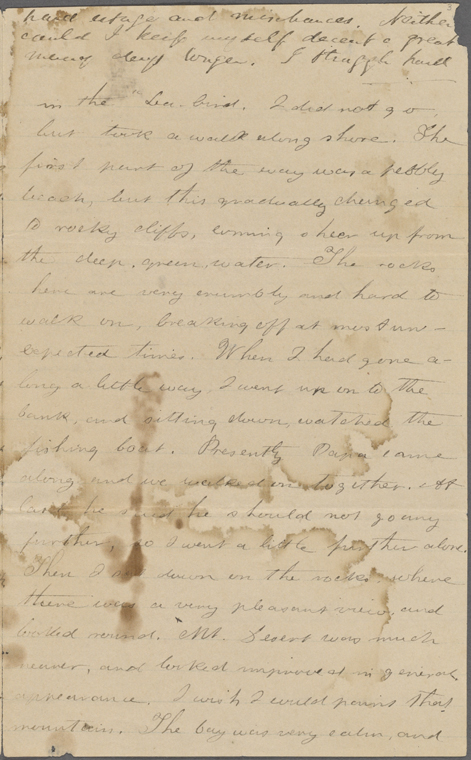 hard usage and
could I keep myself decent a great
many days longer. I
in the Sea-bird. I did not go,
but took a walk along shore. The
first part of the way was a pebbly
beach, but this gradually changed
to rocky cliffs, coming sheer up from
the deep, green, water. The rocks
here are very crumbly and hard to
walk on, breaking off at most un-
expected times. When I had gone a-
long a little way, I went up on to the
bank, and sitting down, watched the
fishing boat. Presently Papa came
along and we walked on together. At
last he said he should not go any
further, so I went a little further alone.
Then I sat down on the rocks where
there was a very pleasant view, and
looked round. Mt. Desert was much
nearer, and looked improved in general
appearance. I wish I could paint that
mountain. The bay was very calm, and